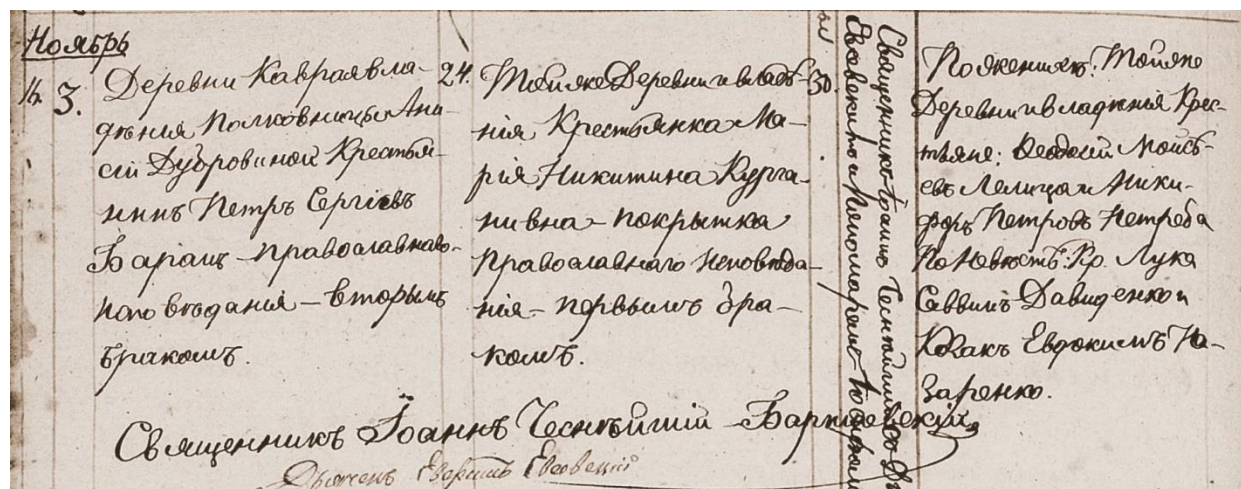 Ноябрь
16. 3.
Деревни Кавраѧ вла-
дѣнія Полковницы Ана-
сіи Дубровиной Крестья-
нинъ Петръ Сергіевъ
Баранъ – православнаго
исповѣданія – вторымъ
бракомъ.
24.
Той же Деревни и владѣ-
нія Крестьянка Ма-
рія Никитина Курга-
нивна – покрытка
православнаго исповѣда-
нія – первымъ бра-
комъ.
30.
Священникъ Іоаннъ
По женихѣ: Той же
Деревни и владѣнія Крес-
тьяне: Ѳеодосій Моисѣ-
евъ Лелица и Ники-
форъ Петровъ Нетреба
По Невѣстѣ: Кр. Лука
Саввинъ Давиденко и
Козакъ Евдокимъ На-
заренко.
Священникъ Іоаннъ